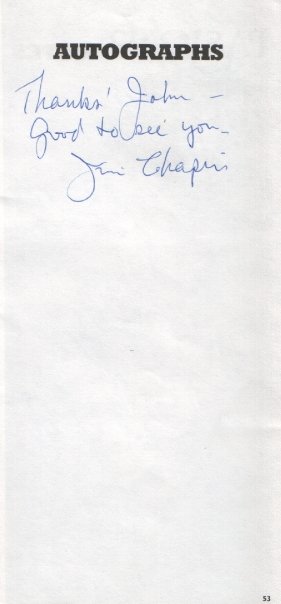 AUTOGRAPHS
Thanks' John –
good to see you–
Jim Chapin
53